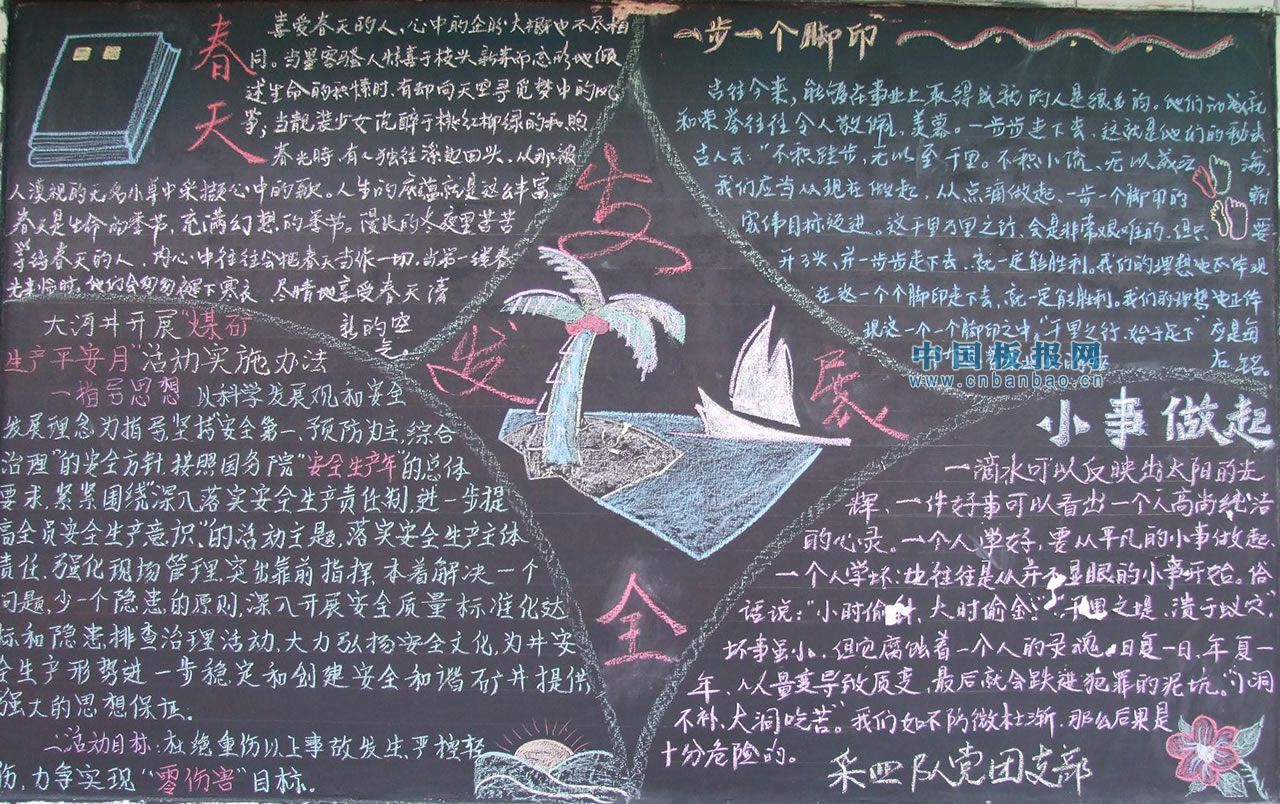 春天
喜爱春天的人，心中的企盼大概也不尽相
同。当墨客骚人惊喜于枝头新芽而忘形地倾
述生命的积愫时，有却向天空寻觅梦中的风
筝；当靓装少女沉醉于桃红柳绿的和煦
春光时，有人独往深处回头，从那被
人漠视的无名小草中采撷心中的歌。人生的底蕴就是这么丰富
春天是生命的季节，充满幻想的季节。漫长的冬夜里苦苦
等待春天的人，内心中往往会把春天当作一切，当第一缕春
光来临时，他们会匆匆褪下寒衣，尽情地享受春天清
新的空
气。
一步一个脚印
古往今来，能够在事业上取得成就的人是很多的。他们的成就
和荣誉往往令人敬佩、羡慕。一步步走下去，这就是他们的秘诀
古人云："不积跬步，无以至千里。不积小流，无以成江海
我们应当从现在做起，从点滴做起、一步一个脚印的朝
宏伟目标迈进。这千里万里之行，会是非常艰难的，但只要
开了头，并一步步走下去，就一定能胜利。我们的理想也正体现
在这一个个脚印走下去，就一定能胜利。我们的理想也正体
现这一个一个脚印之中"千里之行，始于足下"应是每
右铭。
中国板报网
www.cnbanbao.cn
安
发展
全
大河井开展"煤矿
生产平安月"活动实施办法
一指导思想 以科学发展观和安全
发展理念为指导坚持"安全第一、预防为主，综合
治理"的安全方针，按照国务院"安全生产年"的总体
要求，紧紧围绕"深入落实安全生产责任制，进一步提
高全员安全生产意识"的活动主题，落实安全生产主体
责任，强化现场管理，突出靠前指挥，本着解决一个
问题，少一个隐患的原则，深入开展安全质量标准化达
标和隐患排查治理活动，大力弘扬安全文化，为井安
全生产形势进一步稳定和创建安全和谐矿井提供
强大的思想保证。
二活动目标：杜绝重伤以上事故发生，严控轻
伤，力争实现"零伤害"目标。
小事做起
一滴水可以反映出太阳的光
辉，一件好事可以看出一个人高尚纯洁
的心灵。一个人学好，要从平凡的小事做起、
一个人学坏：也往往是从并不显眼的小事开始。俗
话说："小时偷针，大时偷金。""千里之堤，溃于蚁穴"，
坏事虽小，但它腐蚀着一个人的灵魂，日复一日，年复一
年、从量变导致质变，最后就会跌进犯罪的泥坑。"小洞
不补，大洞吃苦"。我们如不防微杜渐，那么后果是
十分危险的。
采四队党团支部